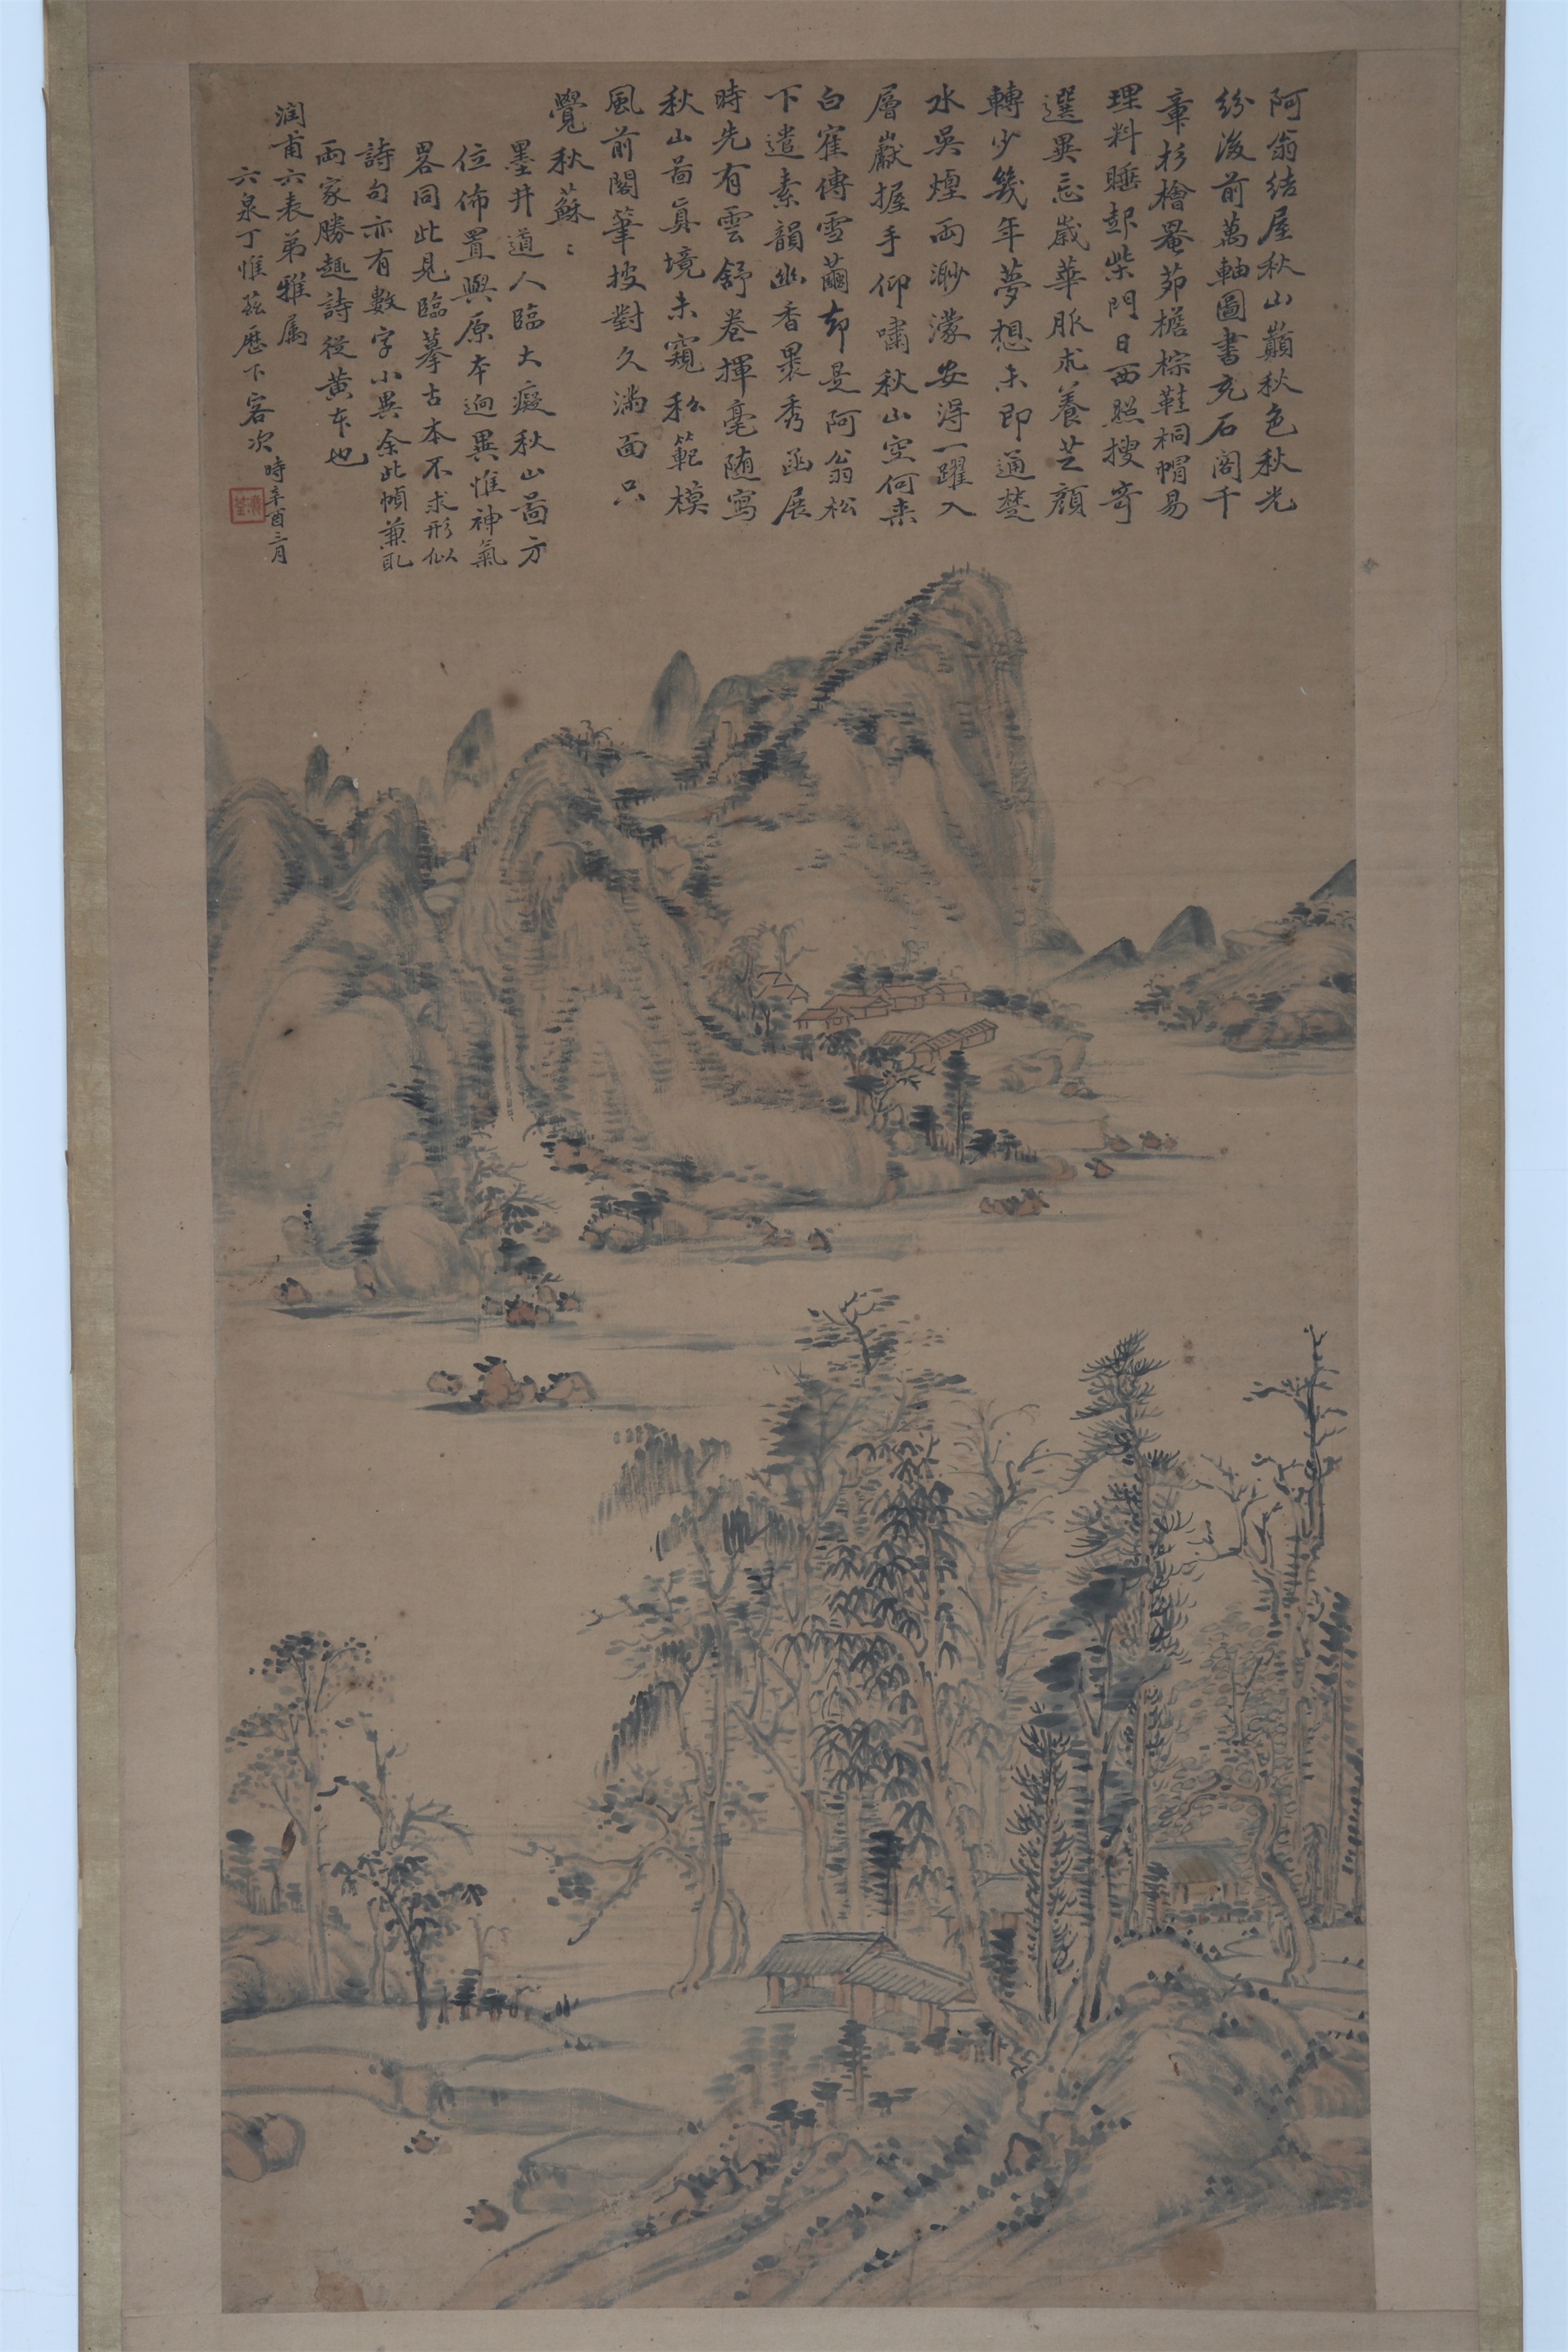 阿翁結屋秋山巔秋色秋光
紛後前萬軸圖書充石閣千
章杉檜罨茆檐棕鞋桐帽易
理料睡起柴門日西照搜奇
選異忘歲華服朮養芝顏
轉少幾年夢想未即通楚
水吳煙雨渺濛安得一躍入
層巘握手仰嘯秋山空何來
白寉傳雪繭却是阿翁松
下遣素韻幽香褁秀函展
時先有雲舒卷揮毫随寫
秋山啚真境未窺私範模
風前閣筆披對久滿面只
覺秋蘇:
墨井道人臨大癡秋山啚方
位佈置與原本逈異惟神氣
畧同此見臨摹古本不求形似
詩句亦有數字小異余此幀兼取
兩家勝趣詩從黄本也
润甫六表弟雅属
六泉丁惟茲歷下客次
時辛酉三月